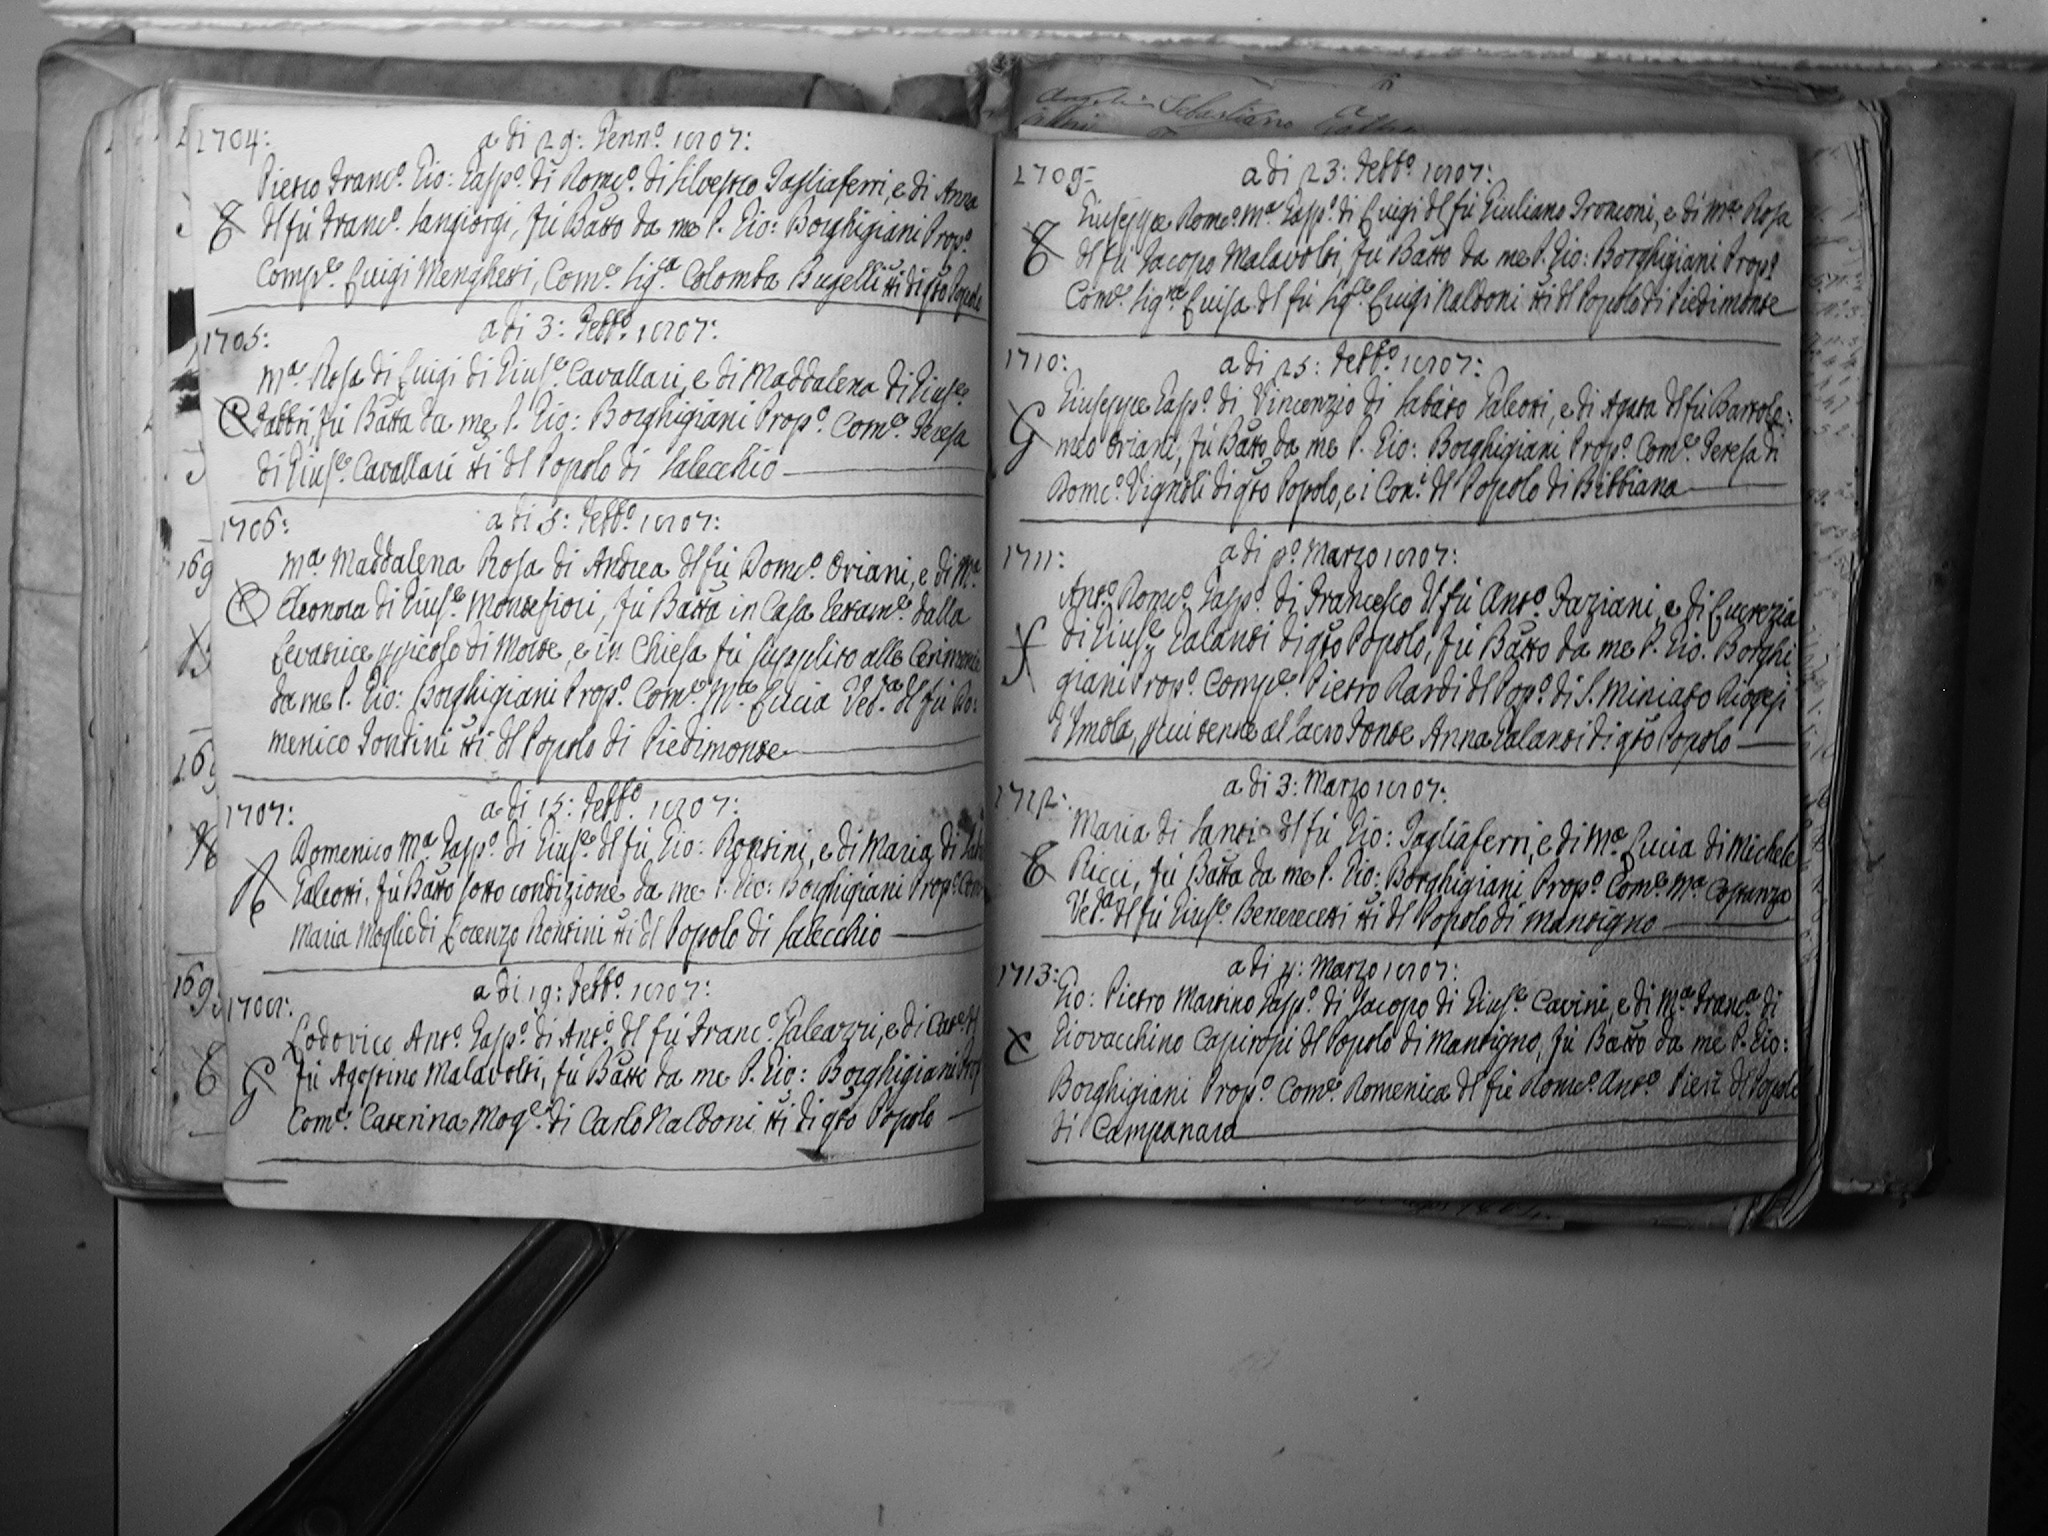 1704:
a di 29: Genn.º 1807:
Pietro Franc.º Gio: Gasp.º di Dom.º di Silvestro Tagliaferri, e di Anna
dl fù Franc.º Sangiorgi, fù Batto da me P. Gio: Borghigiani Prop.º
Comp.e Luigi Mengheti, Com.e Sig.a Colomba Bugelli tti di qto Popolo
1705:
a di 3: Febb.º 1807:
M.a Rosa di Luigi di Gius.e Cavallari, e di Maddalena di Gius.e
Fabbri, fù Batta da me P. Gio: Borghigiani Prop.º Com.e Teresa
di Gius.e Cavallari tti dl Popolo di Salecchio
1706:
a di 5: Febb.º 1807:
M.a Maddalena Rosa di Andrea dl fù Dom.º Oriani, e di M.a
Eleonora di Gius.e Montefiori, fù Batta in Casa dalla
Levatrice di Morte, e in Chiesa fù supplito alle Cerimonie
da me P. Gio: Borghigiani Prop.º Com.e M.a Lucia Ved.a dl fù Do:
menico Fontini tti dl Popolo di Piedimonte
1707:
a di 15: Febb.º 1807:
Domenico M.a Gasp.º di Gius.e dl fù Gio: Rontini, e di Maria di
Galeotti, fù Batto sotto condizione da me P. Gio: Borghigiani Prop.º Com
Maria Moglie di Lorenzo Rontini tti dl Popolo di Salecchio
1708:
a di 19: Febb.º 1807:
Lodovico Ant.º Gasp.º di Ant.º dl fù Franc.º Galeazzi, e di Cat.e dl
fù Agostino Malavolti, fù Batto da me P. Gio: Borghigiani Prop
Com.e Caterina Mog.e di Carlo Naldoni tti di qto Popolo
1709
a di 23: Febb.º 1807:
Giuseppe Dom.º M.a Gasp.º di Luigi dl fù Giuliano Tronconi, e di M.a Rosa
dl fù Jacopo Malavolti, fù Batto da me P. Gio: Borghigiani Prop.º
Com.e Sig.ra Luisa dl fù Sig.e Luigi Naldoni tti dl Popolo di Piedimonte
1710:
a di 25: Febb.º 1807:
Giuseppe Gasp.º di Vincenzio di Sabato Galeotti, e di Agata dl fù Bartolo:
meo Oriani, fù Batto da me P. Gio: Borghigiani Prop.º Com.e Teresa di
Dom.º Vignoli di qto Popolo, e i Con.i dl Popolo di Bibbiana
1711:
a di p.º Marzo 1807:
Ant.º Dom.º Gasp.º di Francesco dl fù Ant.º Faziani, e di Lucrezia
di Gius.e Galanti di qto Popolo, fù Batto da me P. Gio: Borghi
giani Prop.º Comp.e Pietro Nardi dl Pop.º di S. Miniato
d'Imola, al Sacro Fonte Anna Galanti di qto Popolo
1712:
a di 3: Marzo 1807:
Maria di Santi dl fù Gio: Tagliaferri, e di M.a Lucia di Michele
Ricci, fù Batta da me P. Gio: Borghigiani Prop.º Com.e M.a Costanza
Ved.a dl fù Gius.e Benerecetti tti dl Popolo di Mantigno
1713:
a di 4: Marzo 1807:
Gio: Pietro Martino Gasp.º di Jacopo di Gius.e Cavini, e di M.a Franc.a di
Giovacchino Capirossi dl Popolo di Mantigno, fù Batto da me P. Gio:
Borghigiani Prop.º Com.e Domenica dl fù Dom.º Ant.º Pieri dl Popolo
di Campanara